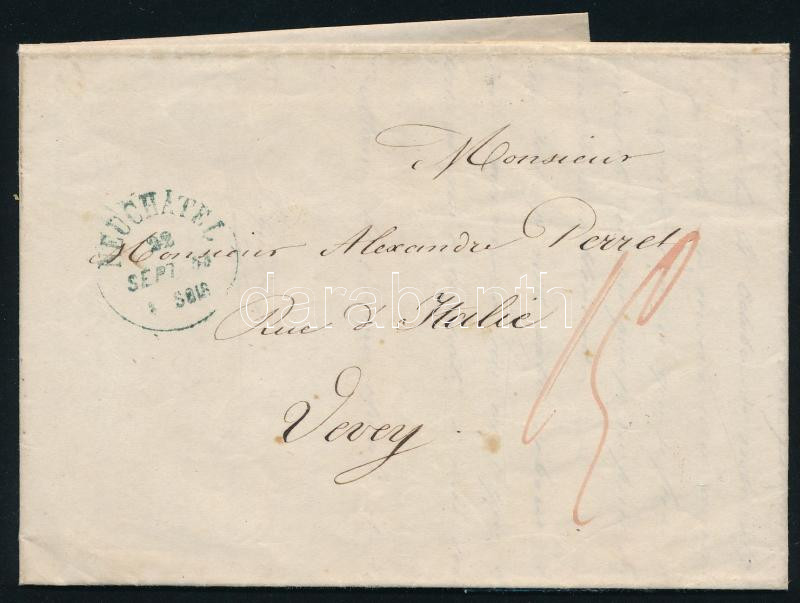 Monsieur
NEUCHATEL
22
SEPT 53
SOIR
Monsieur Alexandre Perret
Rue d'Italie
Vevey
15
darabanth